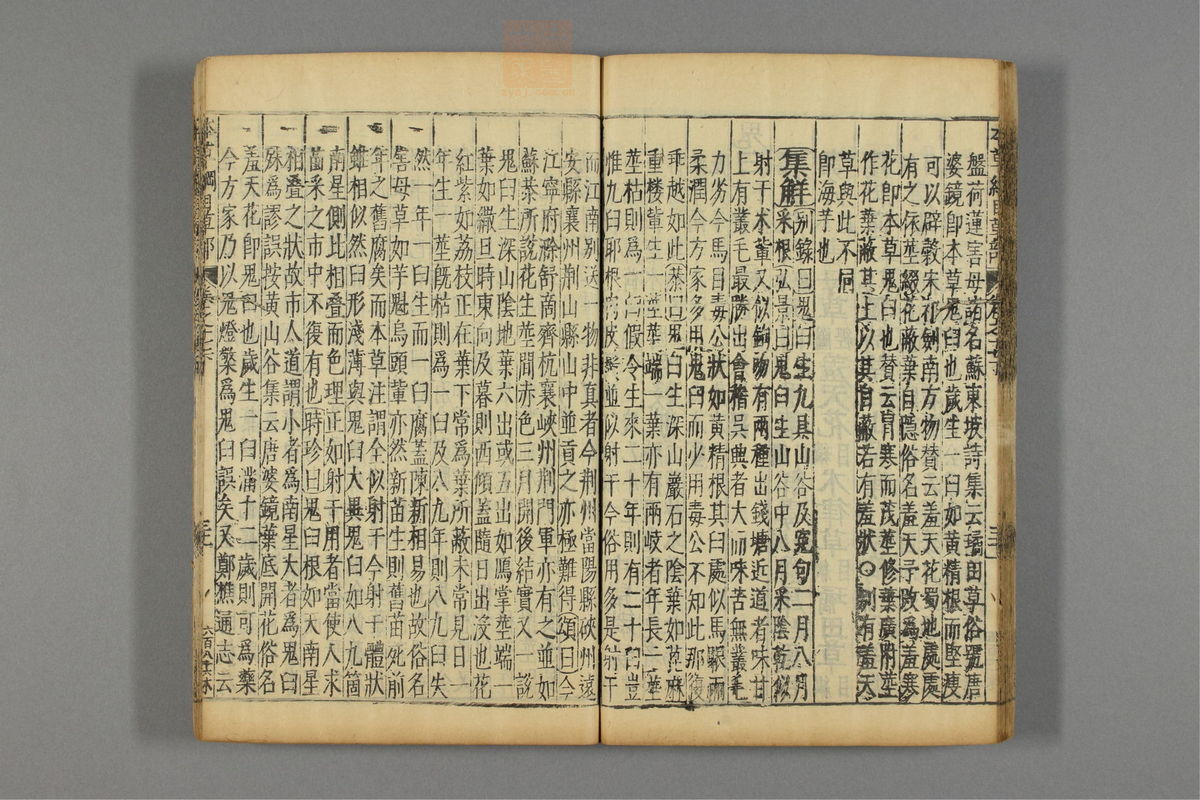 盤荷蓮害母諸名蘇東坡詩集云璚田草俗號唐
婆鏡即本草鬼臼也歲生一臼如黃精根而堅瘦
可以辟穀宋祁劍南方物贊云羞天花蜀地處處
有之依莖綴花蔽葉自隱俗名羞天予改爲羞寒
花即本草鬼臼也贊云冒寒而茂莖修葉廣附莖
作花葉蔽其上以其自蔽若有羞狀○別有羞天
草與此不同
即海芋也
集解別錄曰鬼臼生九具山谷及寃句二月八月
采根弘景曰鬼臼生山谷中八月采陰乾似
射干术輩又似鉤吻有兩種出錢塘近道者味甘
上有叢毛最勝出會稽吳興者大而味苦無叢毛
力劣今馬目毒公狀如黃精根其臼處似馬眼而
柔潤今方家多用鬼臼而少用毒公不知此那復
乖越如此恭曰鬼臼生深山巖石之陰葉如萞麻
重樓輩生一莖莖端一葉亦有兩岐者年長一莖
莖枯則爲一臼假令生來二十年則有二十臼豈
惟九臼耶根肉皮鬚並似射干今俗用多是射干
而江南別送一物非真者今荆州當陽縣硤州遠
安縣襄州荆山縣山中並貢之亦極難得頌曰今
江寧府滁舒商齊杭襄峽州荆門軍亦有之並如
蘇恭所說花生莖間赤色三月開後結實又一說
鬼臼生深山陰地葉六出或五出如鴈掌莖端一
葉如繖旦時東向及暮則西傾蓋隨日出沒也花
紅紫如荔枝正在葉下常爲葉所蔽未常見日一
年生一莖既枯則爲一臼及八九年則八九臼矣
然一年一臼生而一臼腐蓋陳新相易也故俗名
害母草如芋魁烏頭輩亦然新苗生則舊苗死前
年之舊腐矣而本草注謂全似射干今射干體狀
雖相似然臼形淺薄與鬼臼大異鬼臼如八九箇
南星側比相疊而色理正如射干用者當使人求
苗采之市中不復有也時珍曰鬼臼根如天南星
相疊之狀故市人通謂小者爲南星大者爲鬼臼
殊爲謬誤按黃山谷集云唐婆鏡葉底開花俗名
羞天花即鬼臼也歲生一臼滿十二歲則可爲藥
今方家乃以鬼燈檠爲鬼臼誤矣又鄭樵通志云